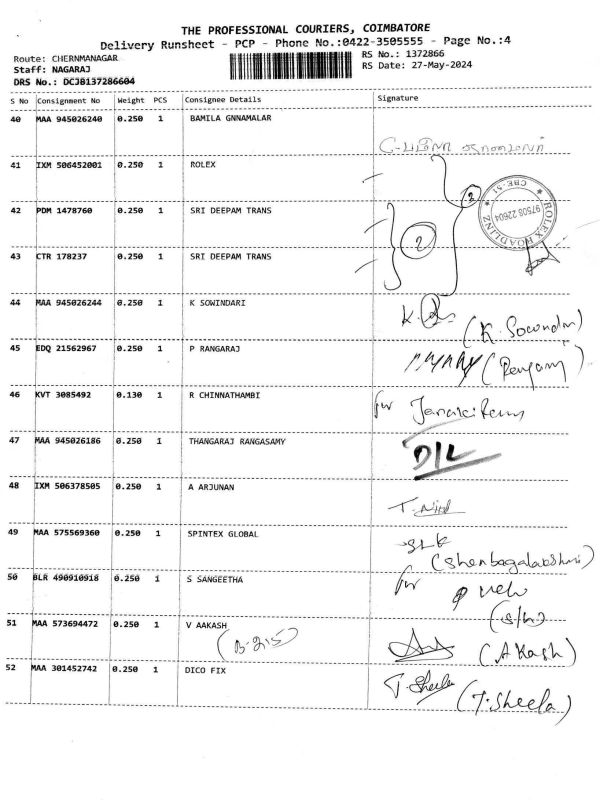 THE PROFESSIONAL COURIERS, COIMBATORE
Delivery Runsheet - PCP - Phone No.:0422-3505555 - Page No.:4
Route: CHERNMANAGAR
RS No.: 1372866
Staff: NAGARAJ
RS Date: 27-May-2024
DRS No.: DCJB137286604
S No Consignment No Weight PCS Consignee Details Signature
40 MAA 945026240 0.250 1 BAMILA GNNAMALAR
41 IXM 506452001 0.250 1 ROLEX
2
ROLEX ROADLINZ
CBE-51
97508 22604
42 PDM 1478760 0.250 1 SRI DEEPAM TRANS
2
43 CTR 178237 0.250 1 SRI DEEPAM TRANS
44 MAA 945026244 0.250 1 K SOWINDARI
(K. Sowndari)
45 EDQ 21562967 0.250 1 P RANGARAJ
46 KVT 3085492 0.130 1 R CHINNATHAMBI
for
47 MAA 945026186 0.250 1 THANGARAJ RANGASAMY
D/L
48 IXM 506378505 0.250 1 A ARJUNAN
49 MAA 575569360 0.250 1 SPINTEX GLOBAL
(Shenbagalakshmi)
50 BLR 490910918 0.250 1 S SANGEETHA
for
(S/W)
51 MAA 573694472 0.250 1 V AAKASH
(B-215)
(AKash)
52 MAA 301452742 0.250 1 DICO FIX
T. Sheela (T. Sheela)